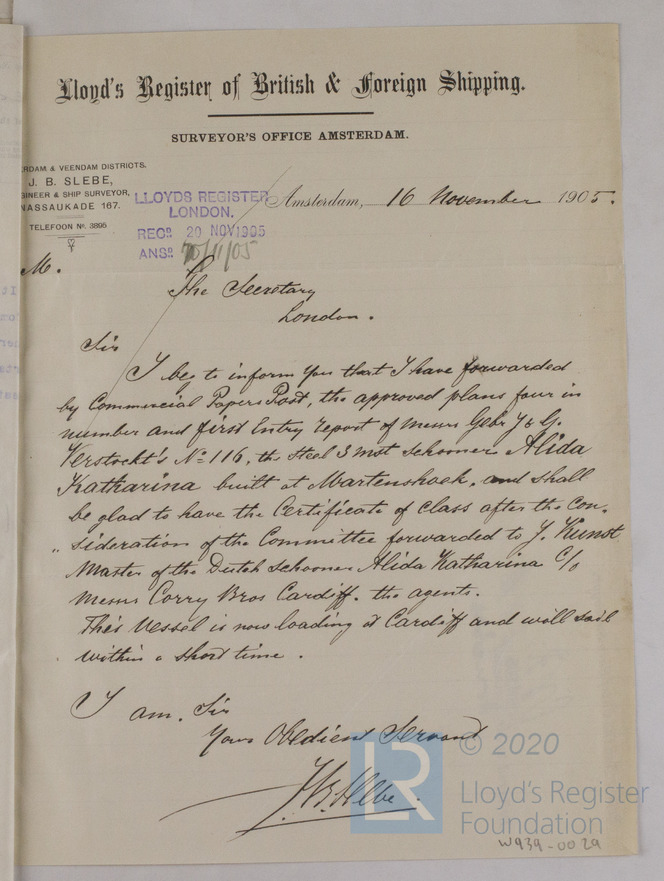 Lloyd's Register of British & Foreign Shipping.
SURVEYOR'S OFFICE AMSTERDAM.
RDAM & VEENDAM DISTRICTS.
J. B. SLEBE,
GINEER & SHIP SURVEYOR,
NASSAUKADE 167.
TELEFOON No. 3895
LLOYDS REGISTER
LONDON.
RECD 20 NOV 1905
ANSD 20/11/05
Amsterdam, 16 November 1905.
M.
The Secretary
London.
Sir
I beg to inform you that I have forwarded
by Commercial Papers Post, the approved plans four in
number and first Entry report of messrs Gebr J & G.
Verstockt's No 116, the steel 3 mast schooner Alida
Katharina built at Martenshoek, and shall
be glad to have the Certificate of class after the Con-
" sideration of the Committee forwarded to J. Kunst
Master of the Dutch schooner Alida Katharina C/o
Messrs Corry Bros Cardiff. the agents.
This vessel is now loading at Cardiff and will sail
within a short time.
I am, Sir
Yours Obedient Servant
J B Slebe.
LR
© 2020
Lloyd's Register
Foundation
W939-0029